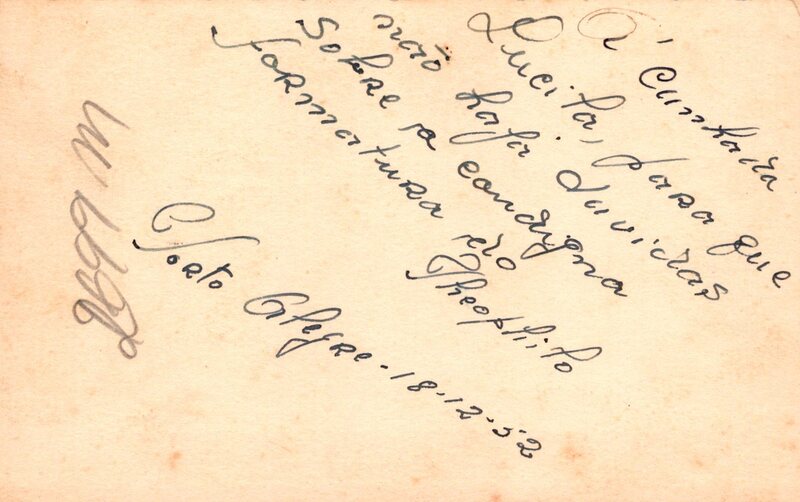 À cunhada
Lucila, para que
não haja duvidas
sobre a condigna
formatura do
Theophilo
Porto Alegre - 18-12-52